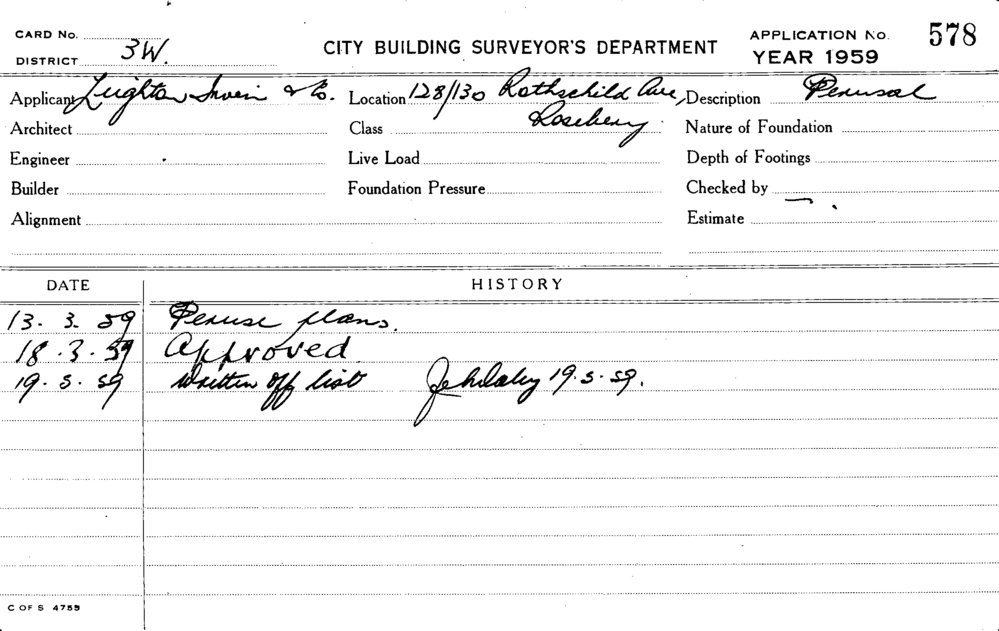 CARD No.
DISTRICT 3W.
CITY BUILDING SURVEYOR'S DEPARTMENT
APPLICATION No. 578
YEAR 1959
Applicant Leighton Irwin & Co. Location 128/130 Rothschild Ave, Description Perusal
Architect Class Rosebery. Nature of Foundation
Engineer Live Load Depth of Footings
Builder Foundation Pressure Checked by
Alignment Estimate
DATE HISTORY
13. 3. 59 Peruse plans.
18. 3. 59 Approved
19. 5. 59 Written off list 19. 5. 59.
C OF S 4759